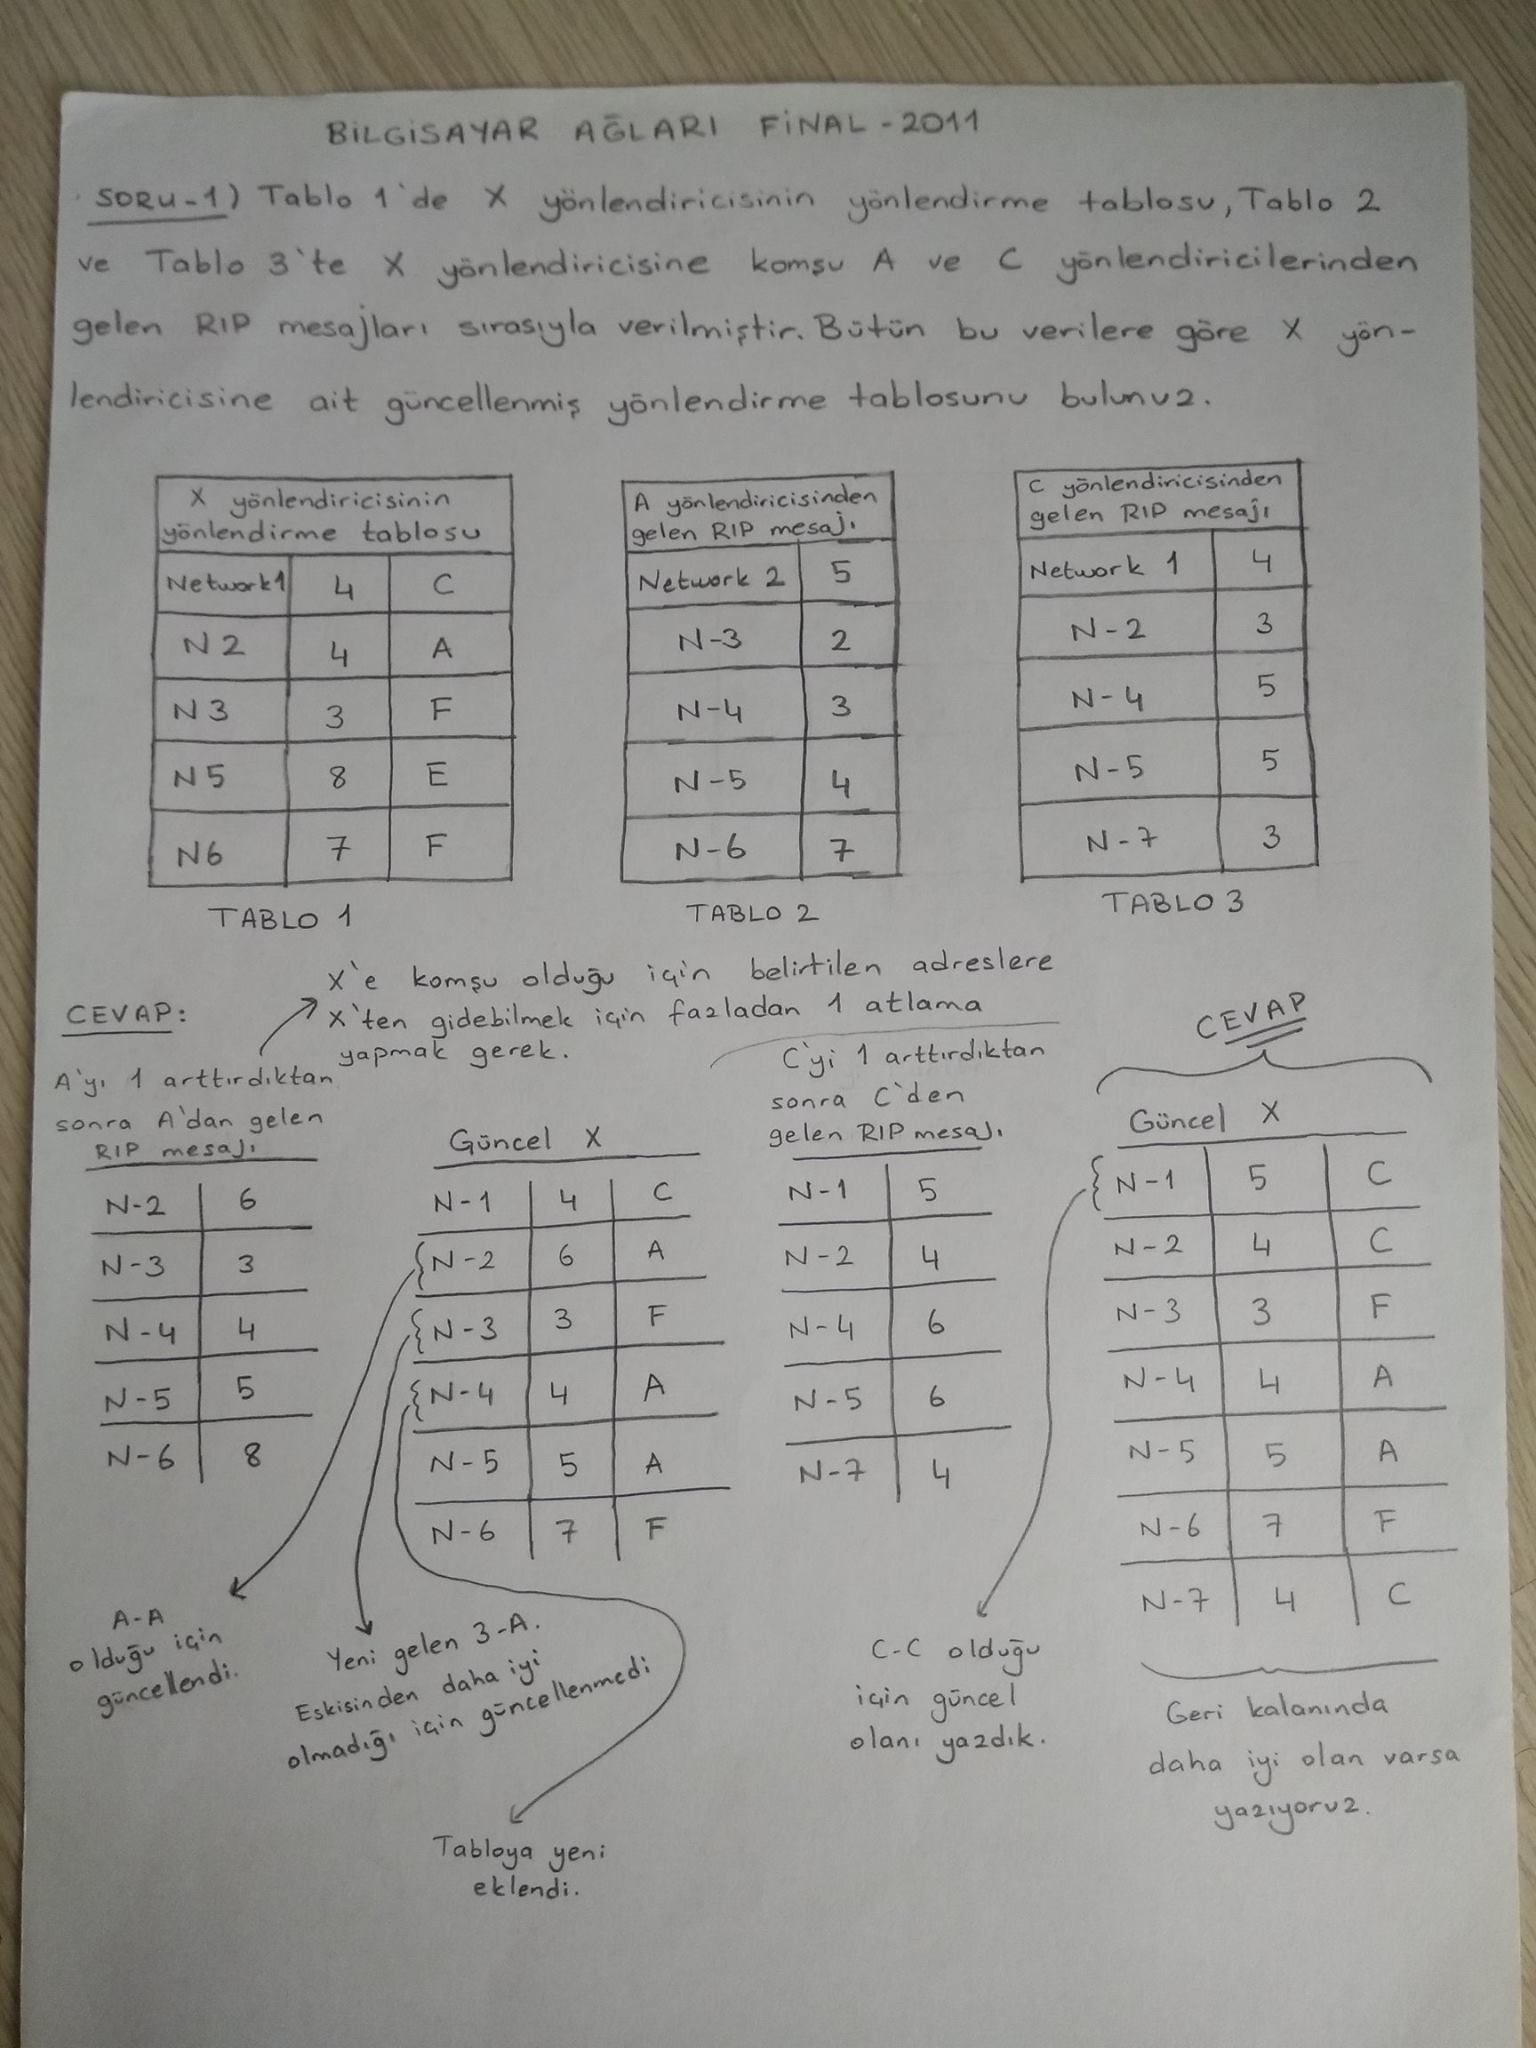 BİLGİSAYAR AĞLARI FİNAL - 2011
SORU-1) Tablo 1'de X yönlendiricisinin yönlendirme tablosu, Tablo 2
ve Tablo 3'te X yönlendiricisine komşu A ve C yönlendiricilerinden
gelen RIP mesajları sırasıyla verilmiştir. Bütün bu verilere göre X yön-
lendiricisine ait güncellenmiş yönlendirme tablosunu bulunuz.
X yönlendiricisinin
yönlendirme tablosu
Network1 4 C
N2 4 A
N3 3 F
N5 8 E
N6 7 F
TABLO 1
A yönlendiricisinden
gelen RIP mesajı
Network 2 5
N-3 2
N-4 3
N-5 4
N-6 7
TABLO 2
C yönlendiricisinden
gelen RIP mesajı
Network 1 4
N-2 3
N-4 5
N-5 5
N-7 3
TABLO 3
CEVAP:
X'e komşu olduğu için belirtilen adreslere
X'ten gidebilmek için fazladan 1 atlama
yapmak gerek.
A'yı 1 arttırdıktan
sonra A'dan gelen
RIP mesajı
N-2 6
N-3 3
N-4 4
N-5 5
N-6 8
Güncel X
N-1 4 C
N-2 6 A
N-3 3 F
N-4 4 A
N-5 5 A
N-6 7 F
C'yi 1 arttırdıktan
sonra C'den
gelen RIP mesajı
N-1 5
N-2 4
N-4 6
N-5 6
N-7 4
CEVAP
Güncel X
N-1 5 C
N-2 4 C
N-3 3 F
N-4 4 A
N-5 5 A
N-6 7 F
N-7 4 C
A-A
olduğu için
güncellendi.
Yeni gelen 3-A.
Eskisinden daha iyi
olmadığı için güncellenmedi
Tabloya yeni
eklendi.
C-C olduğu
için güncel
olanı yazdık.
Geri kalanında
daha iyi olan varsa
yazıyoruz.